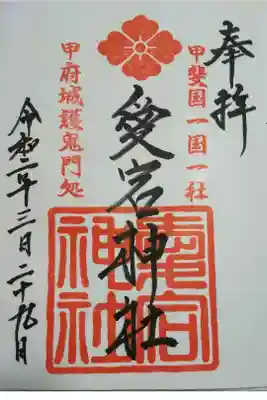 奉拝
甲斐国一国一社
愛宕神社
愛宕神社
甲府城護鬼門処
令和二年三日二十九月